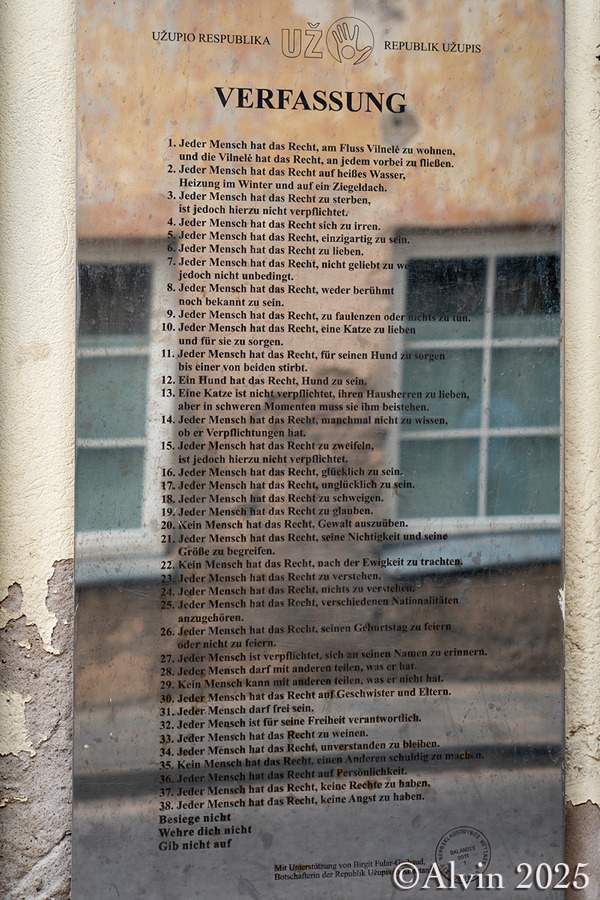 UŽUPIO RESPUBLIKA UŽ REPUBLIK UŽUPIS
VERFASSUNG
1. Jeder Mensch hat das Recht, am Fluss Vilnelė zu wohnen,
und die Vilnelė hat das Recht, an jedem vorbei zu fließen.
2. Jeder Mensch hat das Recht auf heißes Wasser,
Heizung im Winter und auf ein Ziegeldach.
3. Jeder Mensch hat das Recht zu sterben,
ist jedoch hierzu nicht verpflichtet.
4. Jeder Mensch hat das Recht sich zu irren.
5. Jeder Mensch hat das Recht, einzigartig zu sein.
6. Jeder Mensch hat das Recht zu lieben.
7. Jeder Mensch hat das Recht, nicht geliebt zu
jedoch nicht unbedingt.
8. Jeder Mensch hat das Recht, weder berühmt
noch bekannt zu sein.
9. Jeder Mensch hat das Recht, zu faulenzen oder nichts zu tun.
10. Jeder Mensch hat das Recht, eine Katze zu lieben
und für sie zu sorgen.
11. Jeder Mensch hat das Recht, für seinen Hund zu sorgen
bis einer von beiden stirbt.
12. Ein Hund hat das Recht, Hund zu sein.
13. Eine Katze ist nicht verpflichtet, ihren Hausherren zu lieben,
aber in schweren Momenten muss sie ihm beistehen.
14. Jeder Mensch hat das Recht, manchmal nicht zu wissen,
ob er Verpflichtungen hat.
15. Jeder Mensch hat das Recht zu zweifeln,
ist jedoch hierzu nicht verpflichtet.
16. Jeder Mensch hat das Recht, glücklich zu sein.
17. Jeder Mensch hat das Recht, unglücklich zu sein.
18. Jeder Mensch hat das Recht zu schweigen.
19. Jeder Mensch hat das Recht zu glauben.
20. Kein Mensch hat das Recht, Gewalt auszuüben.
21. Jeder Mensch hat das Recht, seine Nichtigkeit und seine
Größe zu begreifen.
22. Kein Mensch hat das Recht, nach der Ewigkeit zu trachten.
23. Jeder Mensch hat das Recht zu verstehen.
24. Jeder Mensch hat das Recht, nichts zu verstehen.
25. Jeder Mensch hat das Recht, verschiedenen Nationalitäten
anzugehören.
26. Jeder Mensch hat das Recht, seinen Geburtstag zu feiern
oder nicht zu feiern.
27. Jeder Mensch ist verpflichtet, sich an seinen Namen zu erinnern.
28. Jeder Mensch darf mit anderen teilen, was er hat.
29. Kein Mensch kann mit anderen teilen, was er nicht hat.
30. Jeder Mensch hat das Recht auf Geschwister und Eltern.
31. Jeder Mensch darf frei sein.
32. Jeder Mensch ist für seine Freiheit verantwortlich.
33. Jeder Mensch hat das Recht zu weinen.
34. Jeder Mensch hat das Recht, unverstanden zu bleiben.
35. Kein Mensch hat das Recht, einen Anderen schuldig zu machen.
36. Jeder Mensch hat das Recht auf Persönlichkeit.
37. Jeder Mensch hat das Recht, keine Rechte zu haben.
38. Jeder Mensch hat das Recht, keine Angst zu haben.
Besiege nicht
Wehre dich nicht
Gib nicht auf
Mit Unterstützung von Birgit
Botschafterin der Republik Užupis
BALANDIS
2011
1
©Alvin 2025